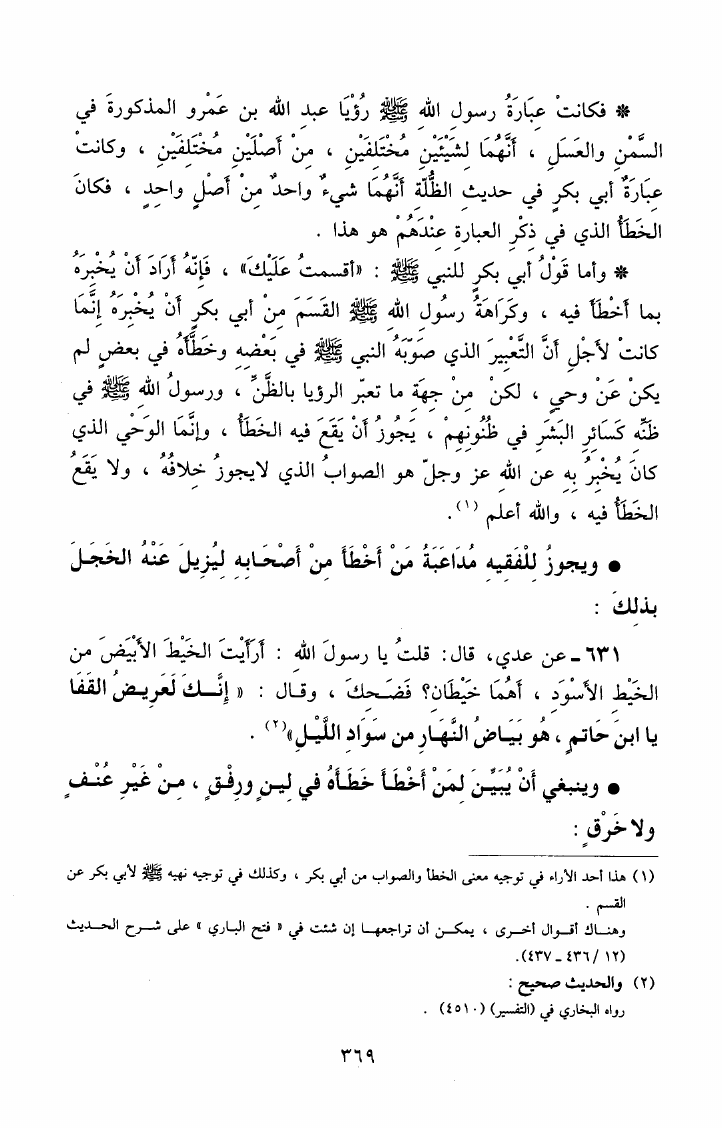 * فكانتْ عِبَارَةُ رسولِ اللهِ ﷺ رُؤْيَا عبدِ اللهِ بن عَمْرو المذكورةَ في
السَّمْنِ والعَسَلِ ، أَنَّهُمَا لِشَيْئَيْنِ مُخْتَلِفَيْنِ ، مِنْ أَصْلَيْنِ مُخْتَلِفَيْنِ ، وكانتْ
عِبَارَةُ أبي بكرٍ في حديثِ الظُّلَّةِ أَنَّهُمَا شيءٌ واحدٌ مِنْ أَصْلٍ واحدٍ ، فكانَ
الخَطَأُ الذي في ذِكْرِ العبارةِ عِنْدَهُمْ هو هذا .
* وأما قَوْلُ أبي بكرٍ للنبي ﷺ : «أقسمتُ عَلَيْكَ» ، فَإِنَّهُ أَرَادَ أَنْ يُخْبِرَهُ
بما أَخْطَأَ فيه ، وكَرَاهَةُ رسُولِ اللهِ ﷺ القَسَمَ مِنْ أبي بكرٍ أَنْ يُخْبِرَهُ إنَّمَا
كانتْ لأَجْلِ أَنَّ التَّعْبِيرَ الذي صَوَّبَهُ النبي ﷺ في بَعْضِهِ وخَطَّأَهُ في بعضٍ لم
يكنْ عَنْ وحيٍ ، لكنْ مِنْ جِهَةِ ما تعبّر الرؤيا بالظَّنِّ ، ورسولُ اللهِ ﷺ في
ظَنِّهِ كَسَائِرِ البَشَرِ في ظُنُونِهِمْ ، يَجُوزُ أَنْ يَقَعَ فيه الخَطَأُ ، وإنَّمَا الوَحْي الذي
كانَ يُخْبِرُ بِهِ عن اللهِ عز وجلّ هو الصوابُ الذي لايجوزُ خِلافُهُ ، ولا يَقَعُ
الخَطَأُ فيه ، والله أعلم (١).
● ويجوزُ لِلْفَقِيهِ مُدَاعَبَةُ مَنْ أَخْطَأَ مِنْ أَصْحَابِهِ لِيُزِيلَ عَنْهُ الخَجَلَ
بذلِكَ :
٦٣١ - عن عدي، قال: قلتُ يا رسولَ اللهِ : أَرَأَيْتَ الخَيْطَ الأَبْيَضَ من
الخَيْطِ الأَسْوَدِ ، أَهُمَا خَيْطَانِ؟ فَضَحِكَ ، وقال : « إِنَّكَ لَعَرِيضُ القَفَا
يا ابنَ حَاتمٍ ، هُو بَيَاضُ النَّهَارِ من سَوَادِ اللَّيْلِ»(٢) .
● وينبغي أَنْ يُبَيِّنَ لِمَنْ أَخْطَأَ خَطَأَهُ في لِينٍ ورِفْقٍ ، مِنْ غَيْرِ عُنْفٍ
ولا خَرْقٍ :
(١) هذا أحد الأراء في توجيه معنى الخطأ والصواب من أبي بكر ، وكذلك في توجيه نهيه ﷺ لأبي بكر عن
القسم .
وهناك أقوال أخرى ، يمكن أن تراجعها إن شئت في « فتح الباري » على شرح الحديث
(١٢ / ٤٣٦ - ٤٣٧).
(٢) والحديث صحيح :
رواه البخاري في (التفسير) (٤٥١٠) .
٣٦٩